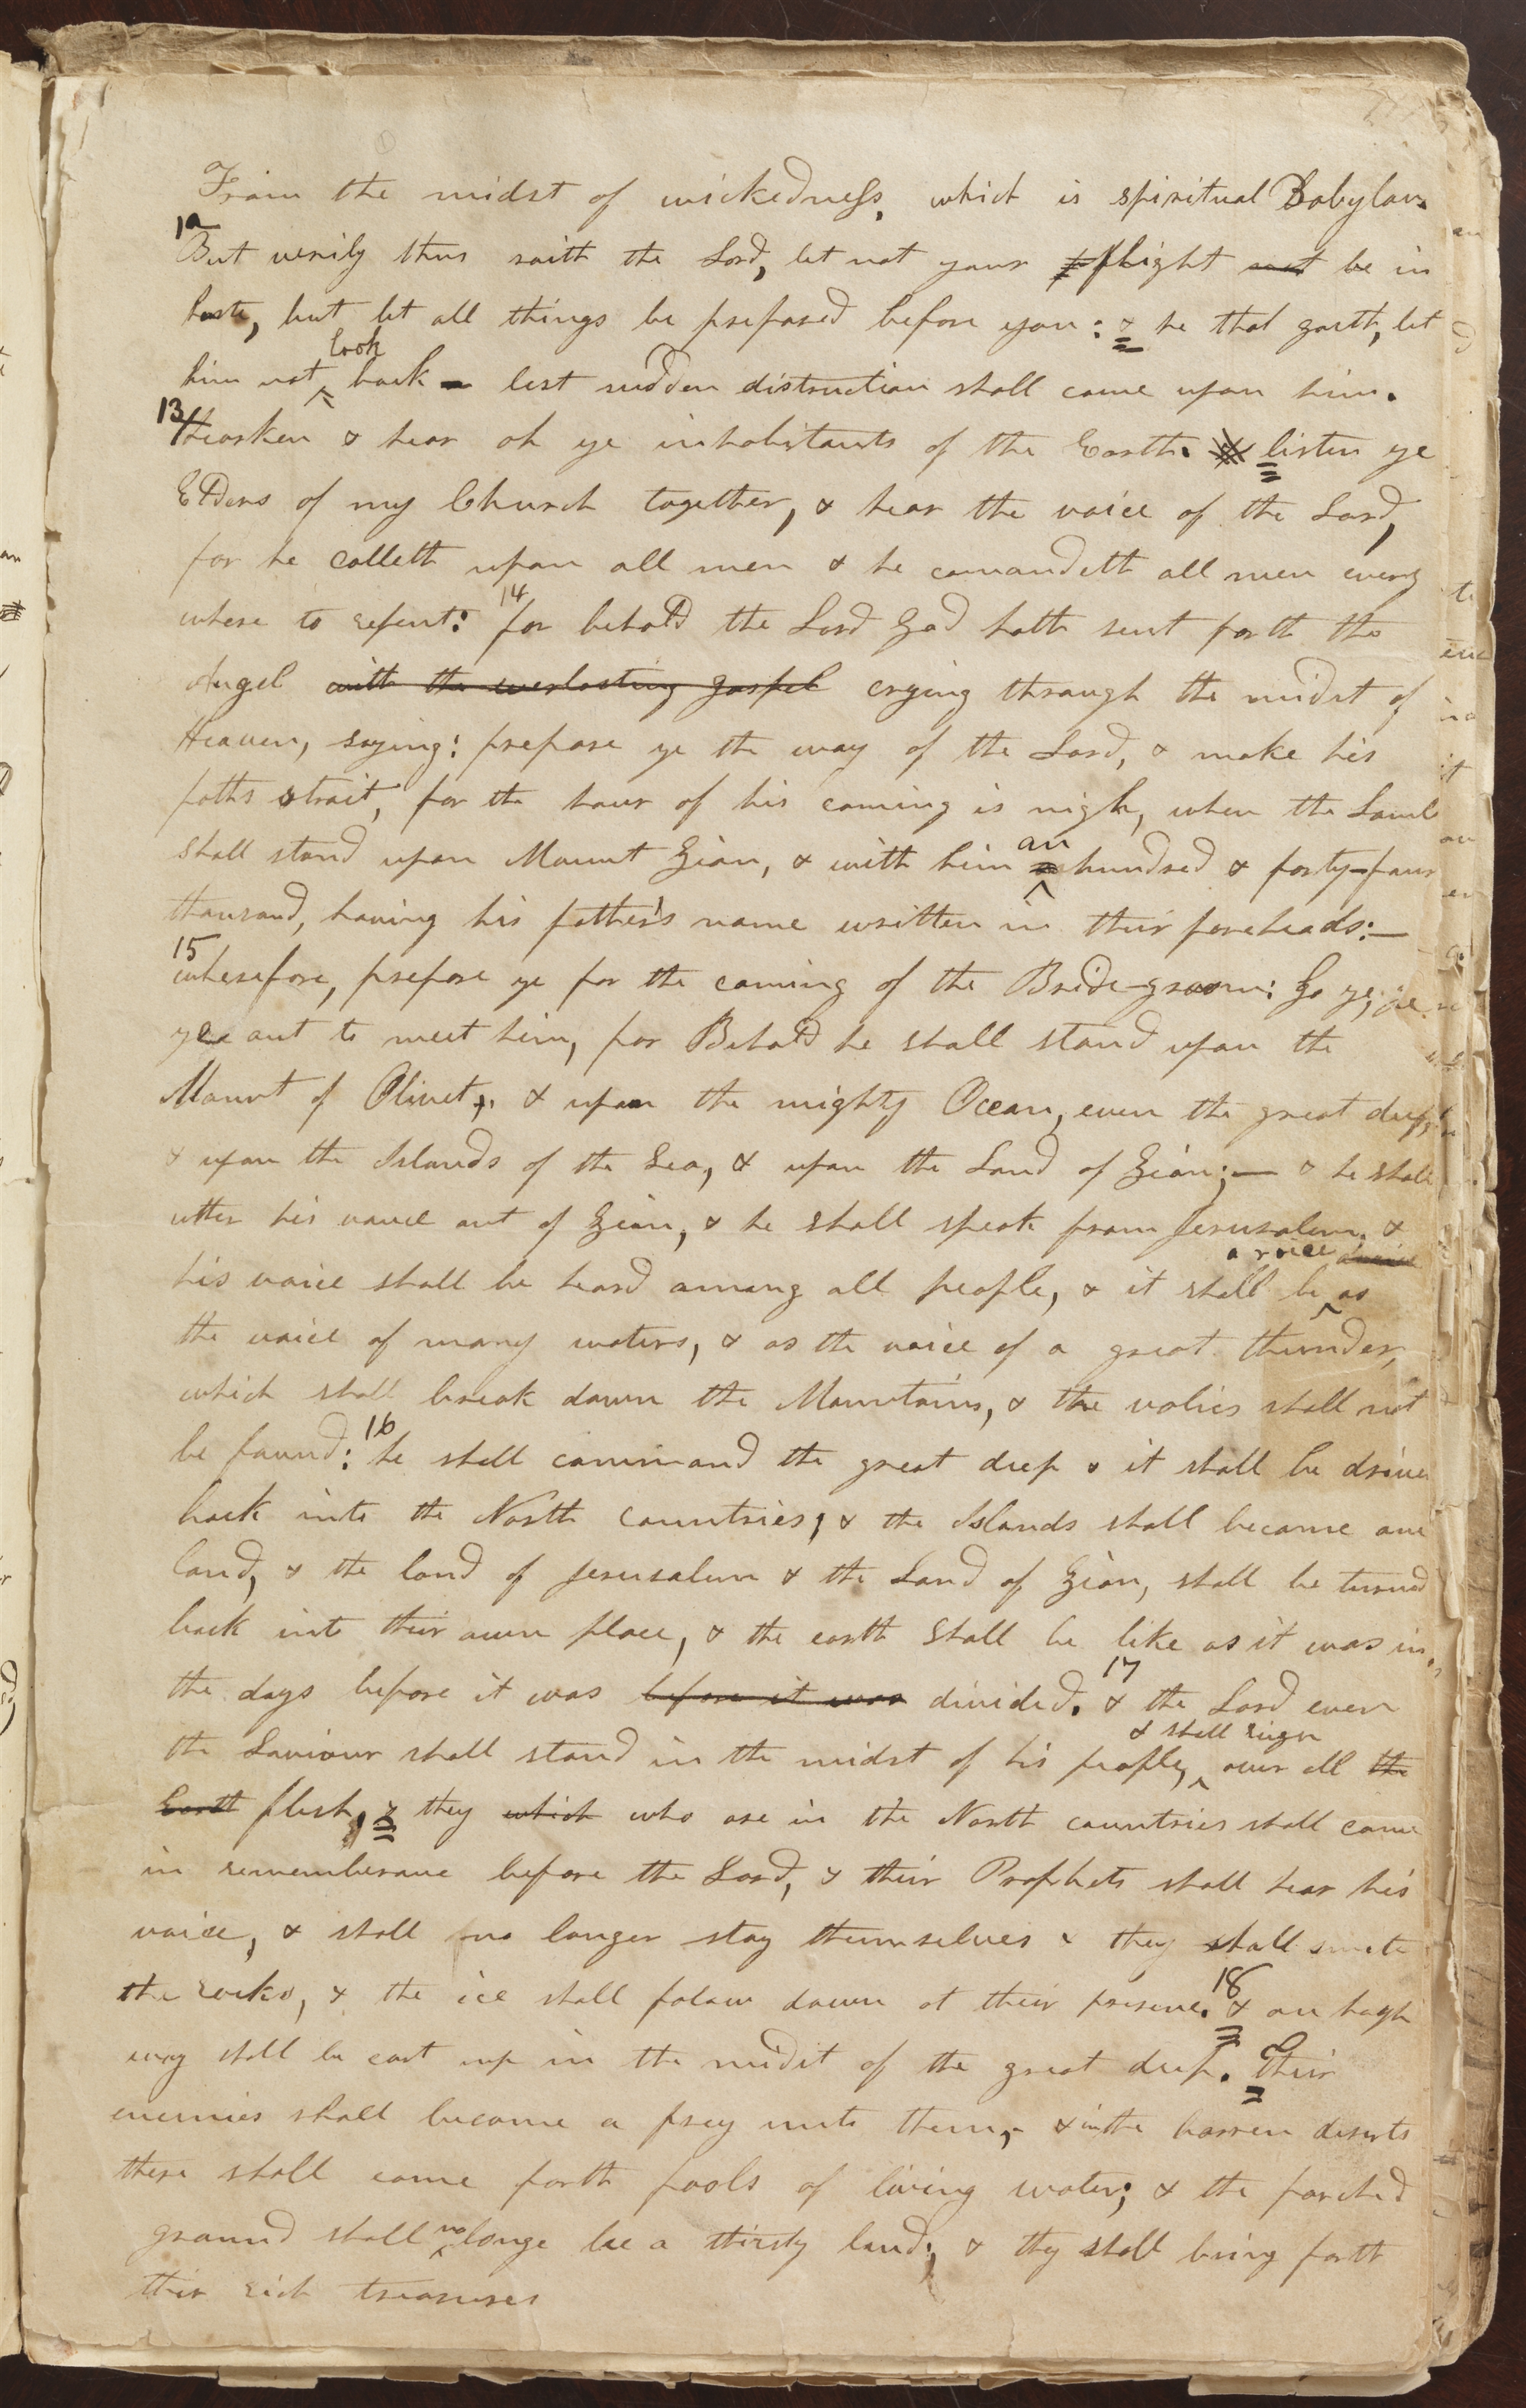 From the midst of wickedness, which is spiritual Babylon.
12 But verily thus saith the Lord, let not your flight not be in
haste, but let all things be prepared before you: & he that goeth, let
him not look back lest sudden distruction shall come upon him.
13 Hearken & hear oh ye inhabitants of the Earth. & listen ye
Elders of my Church together, & hear the voice of the Lord,
for he calleth upon all men & he comandeth all men every
where to repent: 14 for behold the Lord God hath sent forth the
Angel with the everlasting gospel crying through the midst of
Heaven, saying: prepare ye the way of the Lord, & make his
paths strait, for the hour of his coming is nigh, when the Lamb
shall stand upon Mount Zion, & with him an hundred & forty-four
thousand, having his father's name written in their foreheads:—
15 wherefore, prepare ye for the coming of the Bride-groom: Go ye, go
ye out to meet him, for Behold he shall stand upon the
Mount of Olivet, & upon the mighty Ocean, even the great deep,
& upon the Islands of the Sea, & upon the Land of Zion;— & he shall
utter his voice out of Zion, & he shall speak from Jerusalem, &
his voice shall be heard among all people, & it shall be a voice as
the voice of many waters, & as the voice of a great thunder,
which shall break down the Mountains, & the valies shall not
be found: 16 he shall command the great deep & it shall be driven
back into the North countries, & the Islands shall become one
land, & the land of Jerusalem & the Land of Zion, shall be turned
back into their own place, & the earth shall be like as it was in
the days before it was before it was divided. 17 & the Lord even
the Saviour shall stand in the midst of his people, & shall reign over all the
Earth flesh, & they which who are in the North countries shall come
in rememberance before the Lord, & their Prophets shall hear his
voice, & shall no longer stay themselves & they shall smite
the rocks, & the ice shall folow down at their presence. 18 & an high
way shall be cast up in the midst of the great deep. Their
enemies shall become a prey unto them, & in the barren deserts
there shall come forth pools of living water; & the parched
ground shall no longe be a thirsty land; & they shall bring forth
their rich treasures